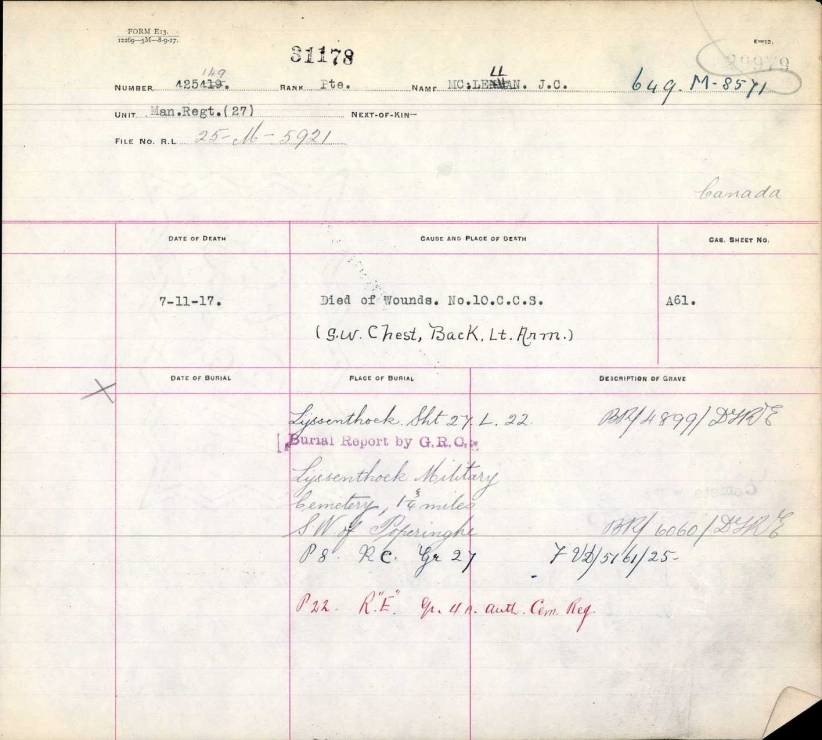 FORM E13.
12269—5M—8-9-17.
31178
149
NUMBER 425419. RANK Pte. NAME MC:LENNAN. J.C. 649. M-8571
LL
UNIT Man.Regt.(27) NEXT-OF-KIN—
FILE NO. R.L. 25-M-5921
Canada
DATE OF DEATH CAUSE AND PLACE OF DEATH CAS. SHEET NO.
7-11-17. Died of Wounds. No.10.C.C.S. A61.
(S.W. Chest, Back, Lt. Arm.)
DATE OF BURIAL PLACE OF BURIAL DESCRIPTION OF GRAVE
Lijssenthoek. Sht 27. L. 22. BR/4899/DGR&E
Burial Report by G.R.C.
Lijssenthoek Military
Cemetery, 1¾ miles
SW of Poperinghe BR/6060/DGR&E
P 8. R C. Gr 27 7 VD/5161/25-
P 22. R."E". Gr. 4 A. auth. Cem. Reg.